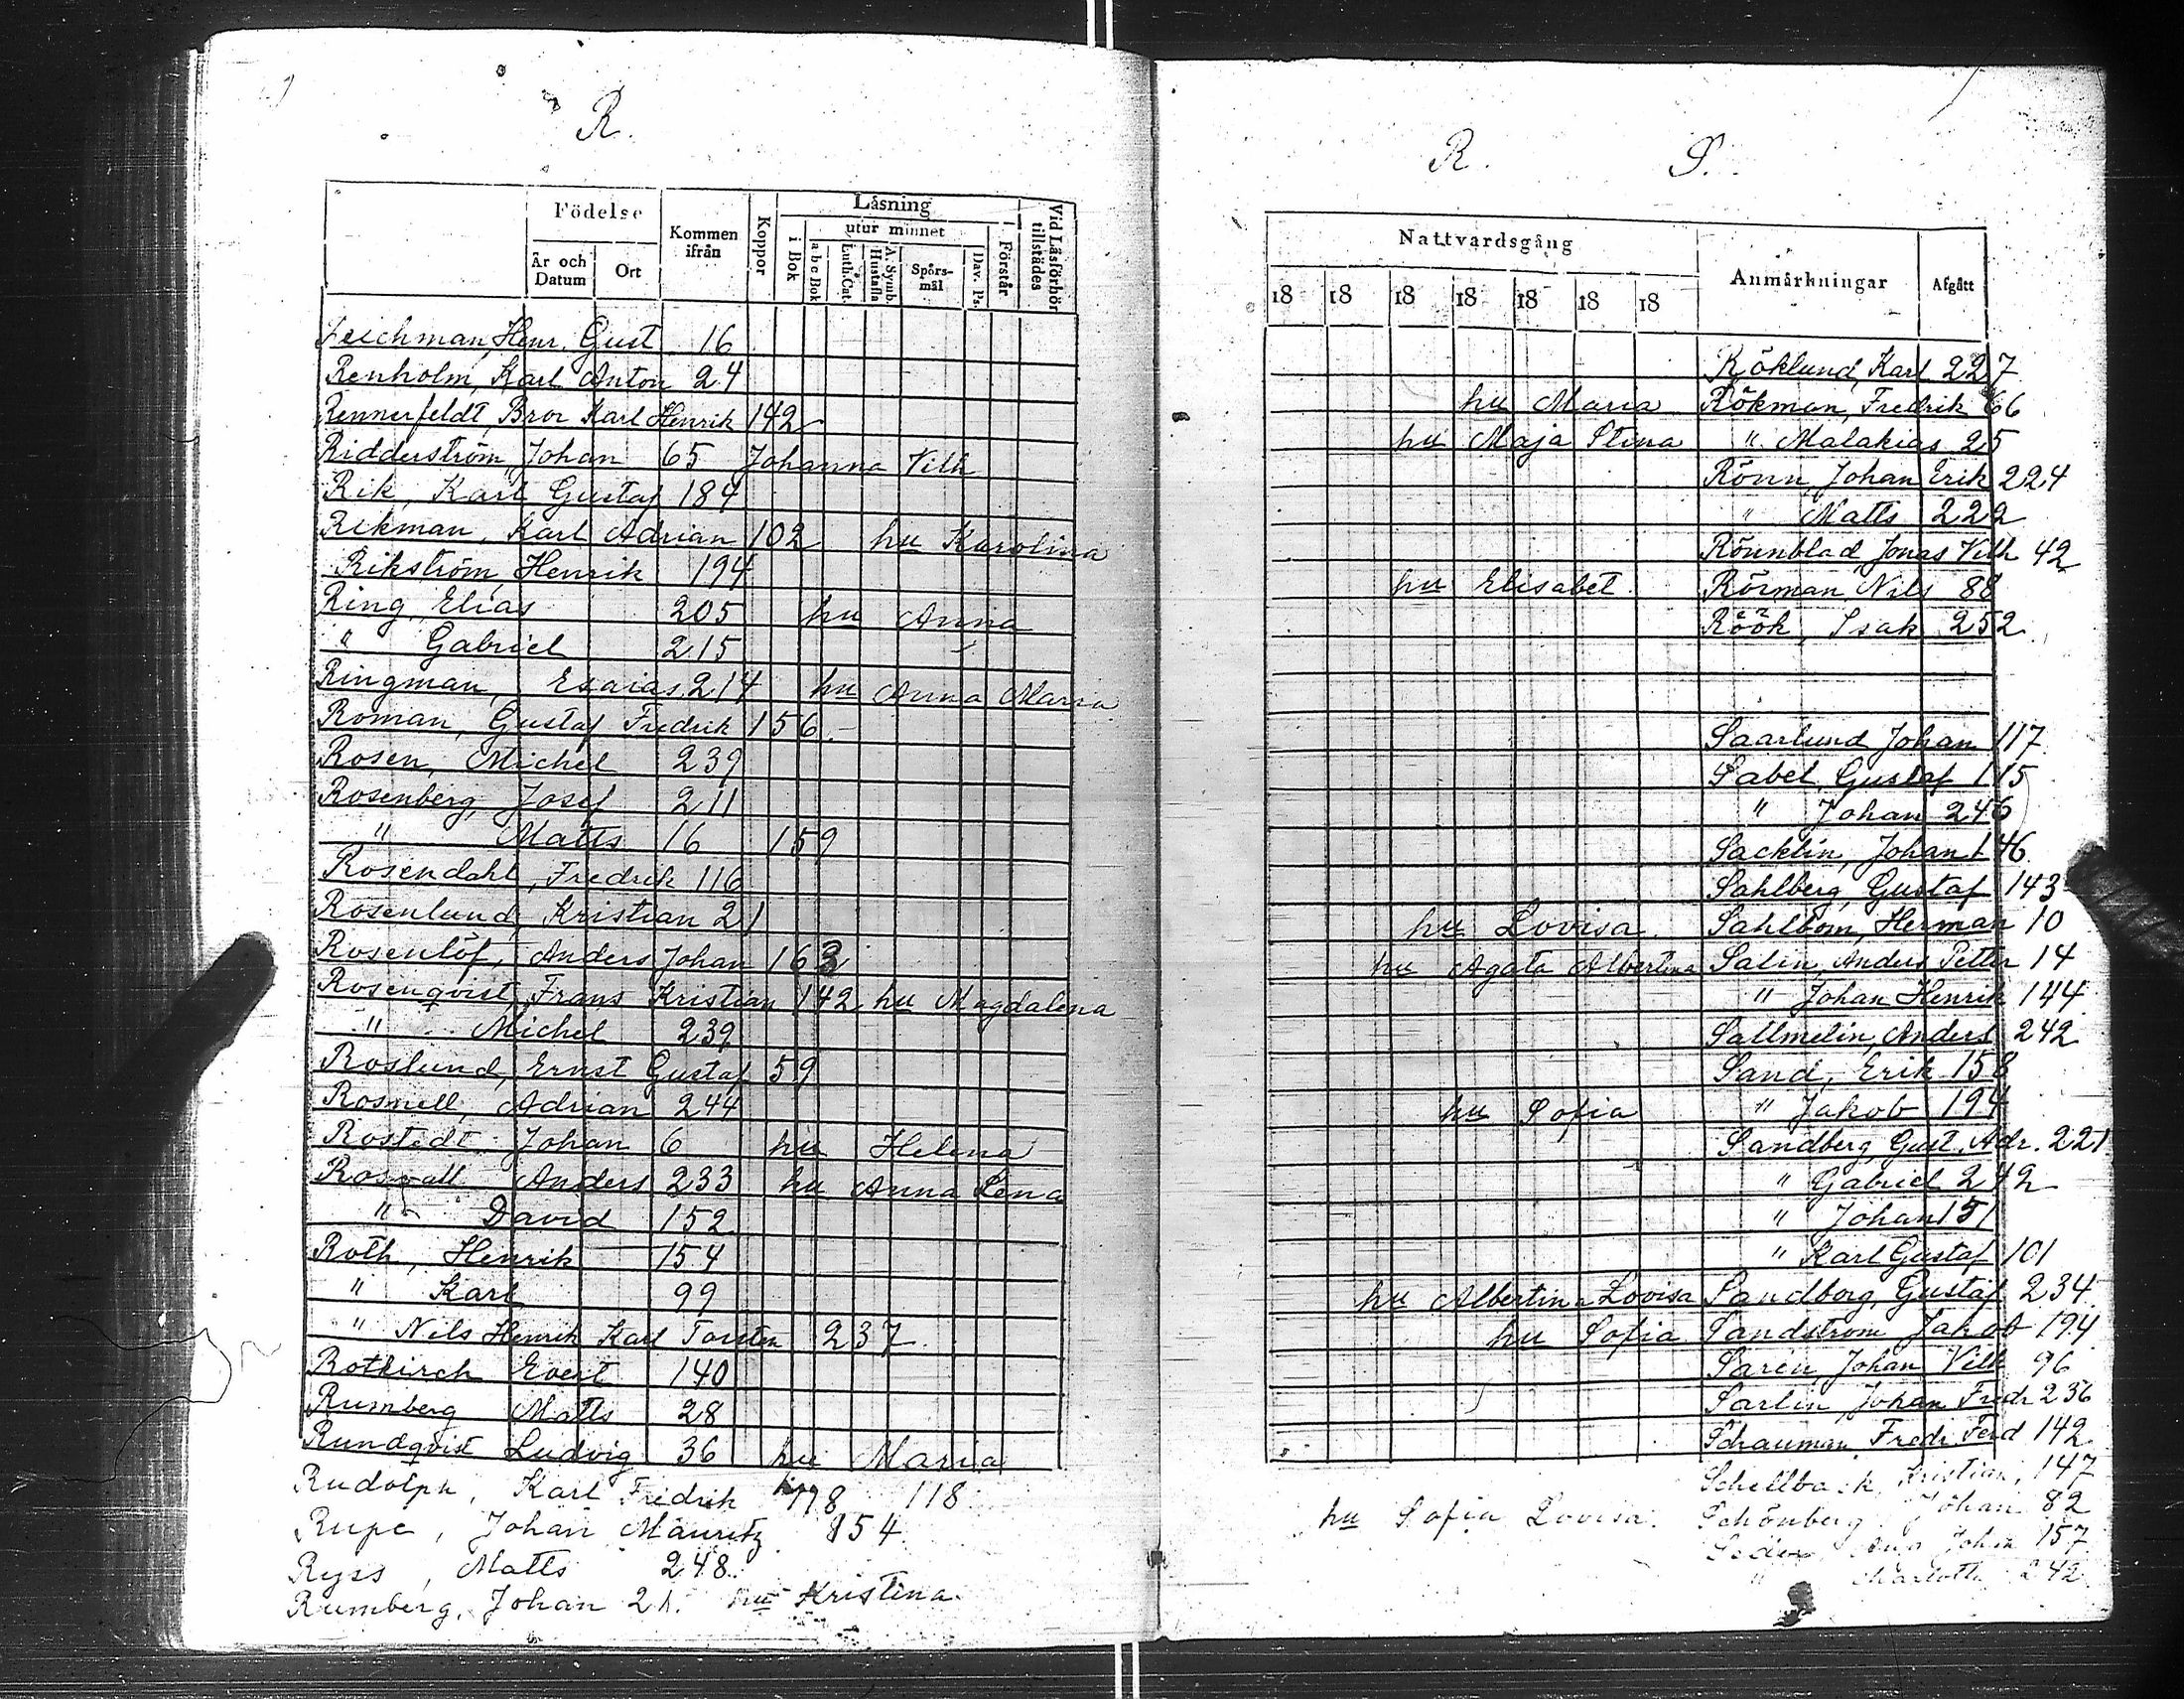 R.
Födelse
Kommen ifrån
Koppor
Läsning
Vid Läsförhör tillstädes
utur minnet
År och Datum
Ort
i Bok
a b c Bok
Luth. Cat.
A. Symb. Hustafla
Spörsmål
Dav. Ps.
Förstår
Henr. Gust 16
Renholm, Karl Anton 24
Rennerfeldt, Bror Karl Henrik 142
Ridderström, Johan 65 Johanna Vilh
Rik, Karl Gustaf 184
Rikman, Karl Adrian 102 hu Karolina
Rikström, Henrik 194
Ring, Elias 205 hu Anna
" Gabriel 215
Ringman, Esaias 214 hu Anna Maria
Roman, Gustaf Fredrik 156.
Rosen, Michel 239
Rosenberg, Josef 211
" Matts 16 159
Rosendahl, Fredrik 116
Rosenlund, Kristian 21
Rosenlöf, Anders Johan 163
Rosenqvist, Frans Kristian 142 hu Magdalena
" Michel 239
Roslund, Ernst Gustaf 59
Rosnell, Adrian 244
Rostedt Johan 6 hu Helena
Rosvall Anders 233 hu Anna Lena
" David 152
Roth, Henrik 154
" Karl 99
" Nils Henrik Karl Torsten 237
Rotkirch Evert 140
Rumberg Matts 28
Rundqvist Ludvig 36 hu Maria
Rudolph, Karl Fredrik 118
Rupe, Johan Mauritz 854
Ryss, Matts 248.
Rumberg, Johan 21. hu Kristina
R. S.
Nattvardsgång
Anmärkningar
Afgått
18 18 18 18 18 18 18
Röklund, Karl 227
hu Maria Rökman, Fredrik 66
hu Maja Stina " Malakias 25
Rönn, Johan Erik 224
" Matts 222
Rönnblad, Jonas Vilh 42
hu Elisabet Rörman, Nils 88
Röök, Isak 252
Saarlund Johan 117
Sabel, Gustaf 115
" Johan 246
Sacklin, Johan 146
Sahlberg, Gustaf 143
hu Lovisa Sahlbom, Herman 10
hu Agata Albertina Salin, Anders Petter 14
" Johan Henrik 144
Sallmelin, Anders 242
Sand, Erik 158
hu Sofia " Jakob 194
Sandberg, Gust. Adr. 221
" Gabriel 242
" Johan 151
" Karl Gustaf 101
hu Albertina Lovisa Sandborg, Gustaf 234
hu Sofia Sandström Jakob 194
Sarén, Johan Vilh 96
Sarlin, Johan Fredr 236
Schauman Fredr. Ferd 142
Schellback, Kristian, 147
hu Sofia Lovisa. Schönberg Johan 82
Johan 157
" 242